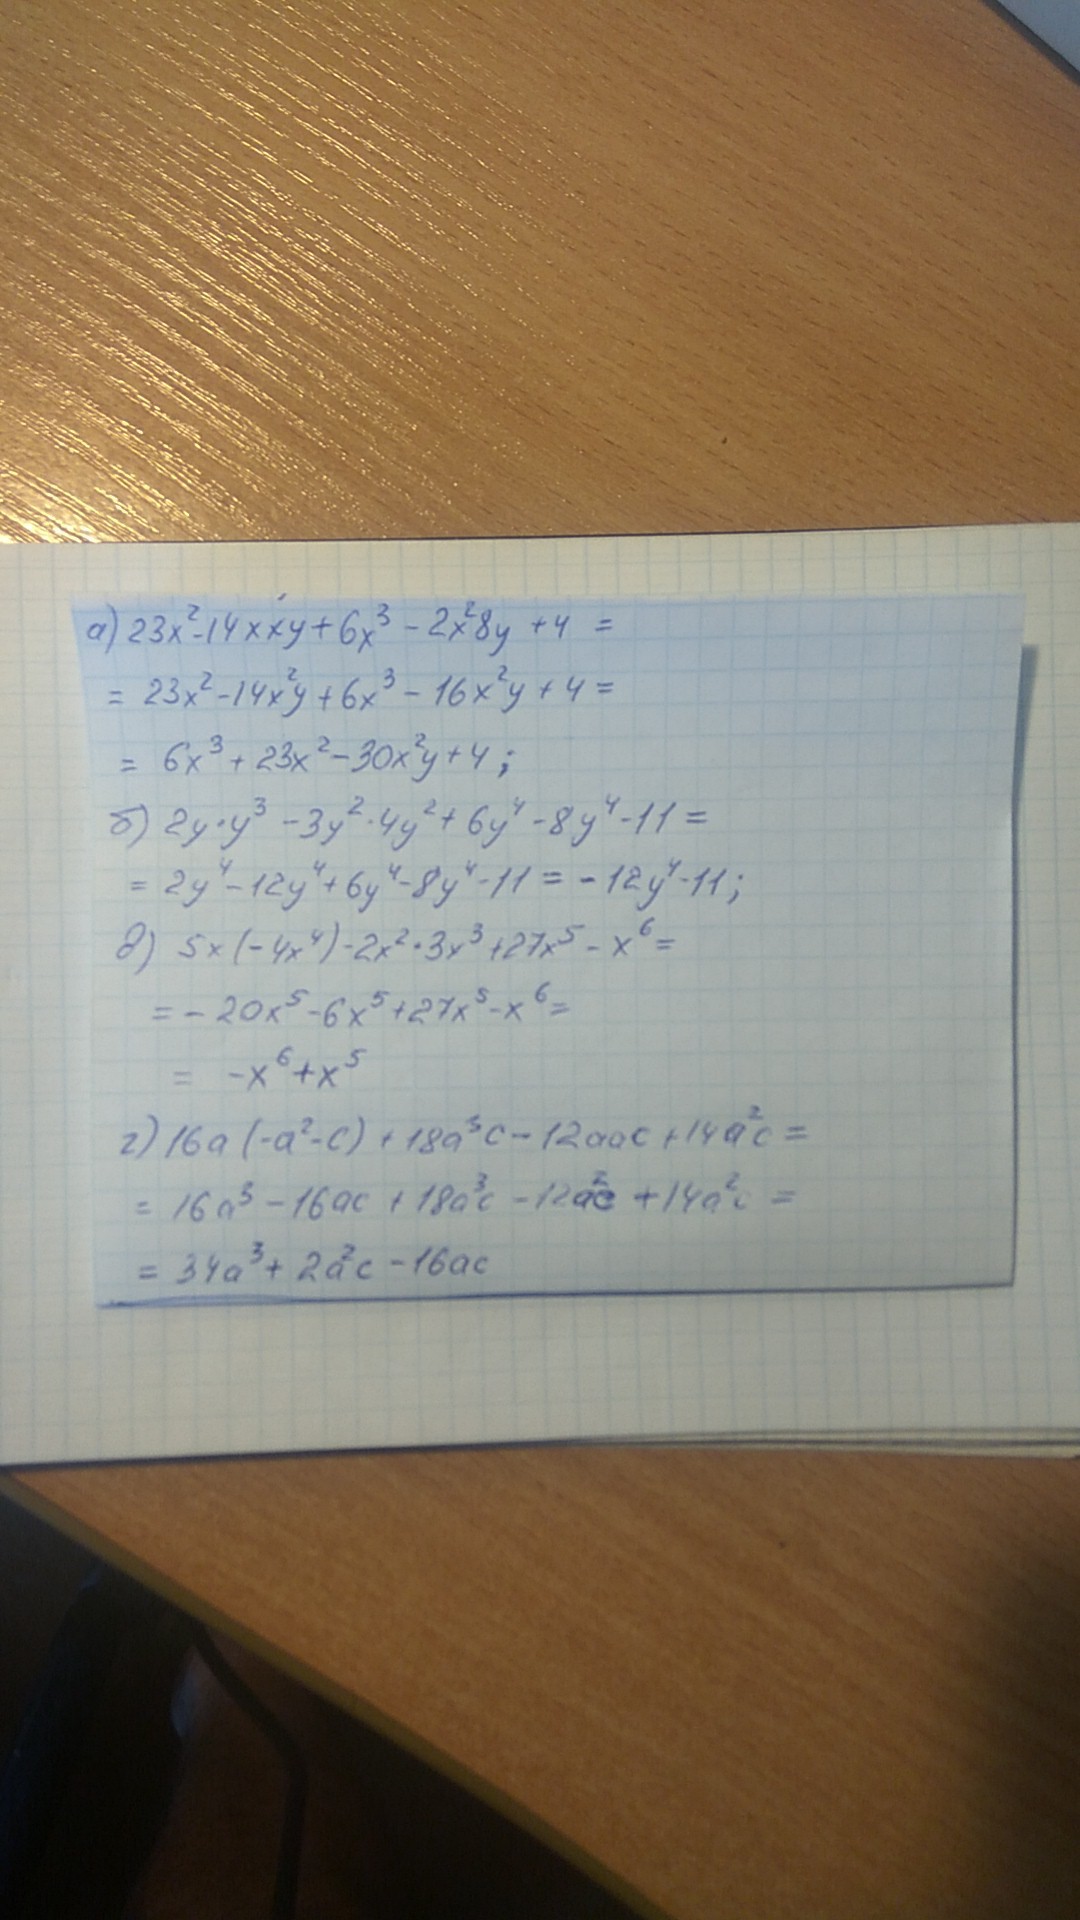 а) 23x² - 14xxy + 6x³ - 2x²8y + 4 =
= 23x² - 14x²y + 6x³ - 16x²y + 4 =
= 6x³ + 23x² - 30x²y + 4;
б) 2y·y³ - 3y²·4y² + 6y⁴ - 8y⁴ - 11 =
= 2y⁴ - 12y⁴ + 6y⁴ - 8y⁴ - 11 = -12y⁴ - 11;
в) 5x(-4x⁴) - 2x²·3x³ + 27x⁵ - x⁶ =
= -20x⁵ - 6x⁵ + 27x⁵ - x⁶ =
= -x⁶ + x⁵
г) 16a(-a² - c) + 18a³c - 12aac + 14a²c =
= 16a³ - 16ac + 18a³c - 12a²c + 14a²c =
= 34a³ + 2a²c - 16ac